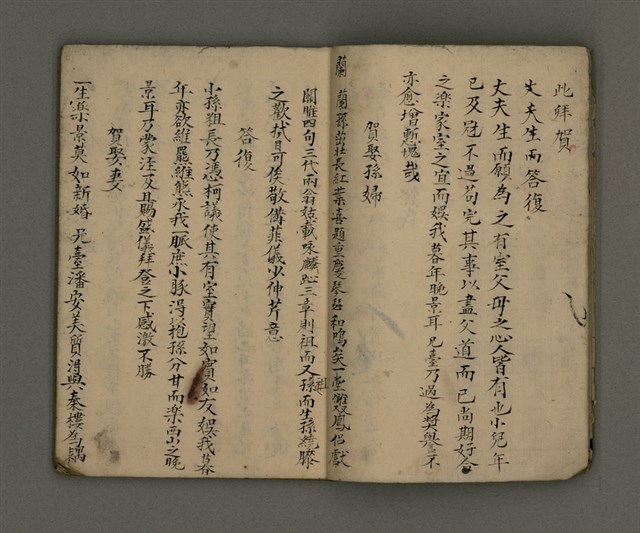 此拜賀
丈夫生而答復
丈夫生而願為之有室父母之心人皆有也小兒年
已及冠不過苟完其事以盡父道而已尚期好合
之樂家室之宜而娛我暮年晚景耳兄臺乃過為獎譽不
亦愈增慙愧哉
賀娶孫婦
蘭蘭孫茁長紅葉喜題重慶琴瑟和鳴矣一堂雙鳳侶獻
關雎四句三代兩翁載咏麟趾三章則祖而又孫祖而生孫繞膝
之歡拭目可俟敬備菲儀少伸芹意
答復
小孫狙長乃憑柯議使其有室實望如賓如友娛我暮
年亦欲維羆維熊永我一脈庶小豚得抱孫分甘而樂西山之晚
景耳乃蒙注及且賜盛儀拜登之下感激不勝
賀娶妻
一生樂景莫如新婚兄臺潘安美質得與秦樓為耦